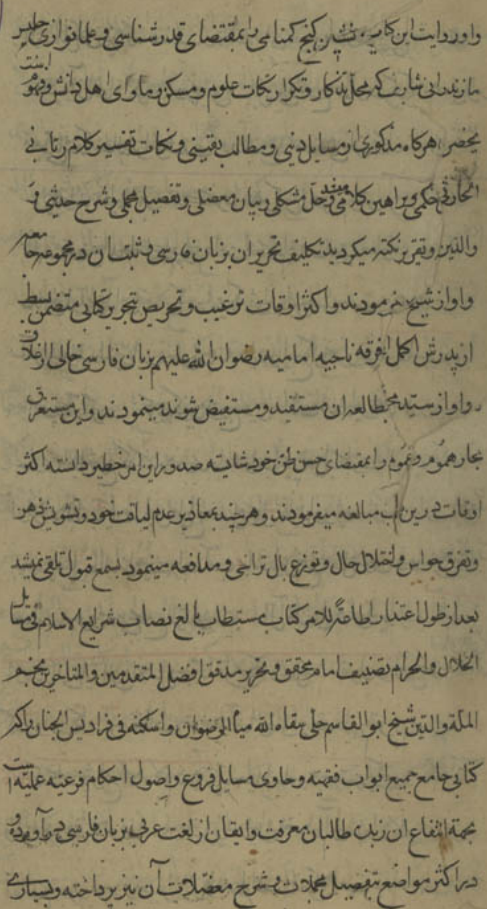 و او روایت این کتاب کنج کمنامی را بمقتضای قدرشناسی و علمانوازی جلیس
مازندرانی شارف که محل تذکار و تکرار نکات علوم و مسکن و ماوای اهل دانش و فهوم است
یحضر هر کاه مذکوری از مسایل دینی و مطالب یقینی و نکات تفسیر کلام ربانی
حکمی و براهین کلامی و حل مشکلی و بیان معضلی و تفصیل مجملی و شرح حدیثی و
والدین و تقریر نکته میکردید تکلیف تحریر ان بزبان فارسی و ثبت ان در مجموعه
و او از شیخ میفرمودند و اکثر اوقات ترغیب و تحریص بتحریر کتابی متضمن بسط
از پدرش اکمل فرقه ناجیه امامیه رضوان الله علیهم بزبان فارسی خالی از اغلاق
و او از سید مطالعه ان مستفید و مستفیض شوند مینمودند و این مستغرق
بحار هموم و غموم را بمقتضای حسن ظن خود شایسته صدور این امر خطیر دانسته اکثر
اوقات درین باب مبالغه میفرمودند و هر چند بمعاذیر عدم لیاقت خود و تشویش ذهن
و تفرق حواس و اختلال حال و توزع بال تراخی و مدافعه مینمود بسمع قبول تلقی نمیشد
بعد از طول اعتذار اطاعة للامر کتاب مستطاب بالغ نصاب شرایع الاسلام فی مسایل
الحلال والحرام تصنیف امام محقق و نحریر مدقق افضل المتقدمین والمتاخرین نجم
الملة والدین شیخ ابوالقاسم حلی سقاه الله میاه الرضوان واسکنه فی فرادیس الجنان را که
کتابی جامع جمیع ابواب فقهیه و حاوی مسایل فروع و اصول احکام فرعیه عملیه است
بجهة انتفاع ان زبده طالبان معرفت و ایقان از لغت عربی بزبان فارسی در آورده و
در اکثر مواضع بتفصیل مجملات و شرح معضلات آن نیز پرداخته و بسیاری